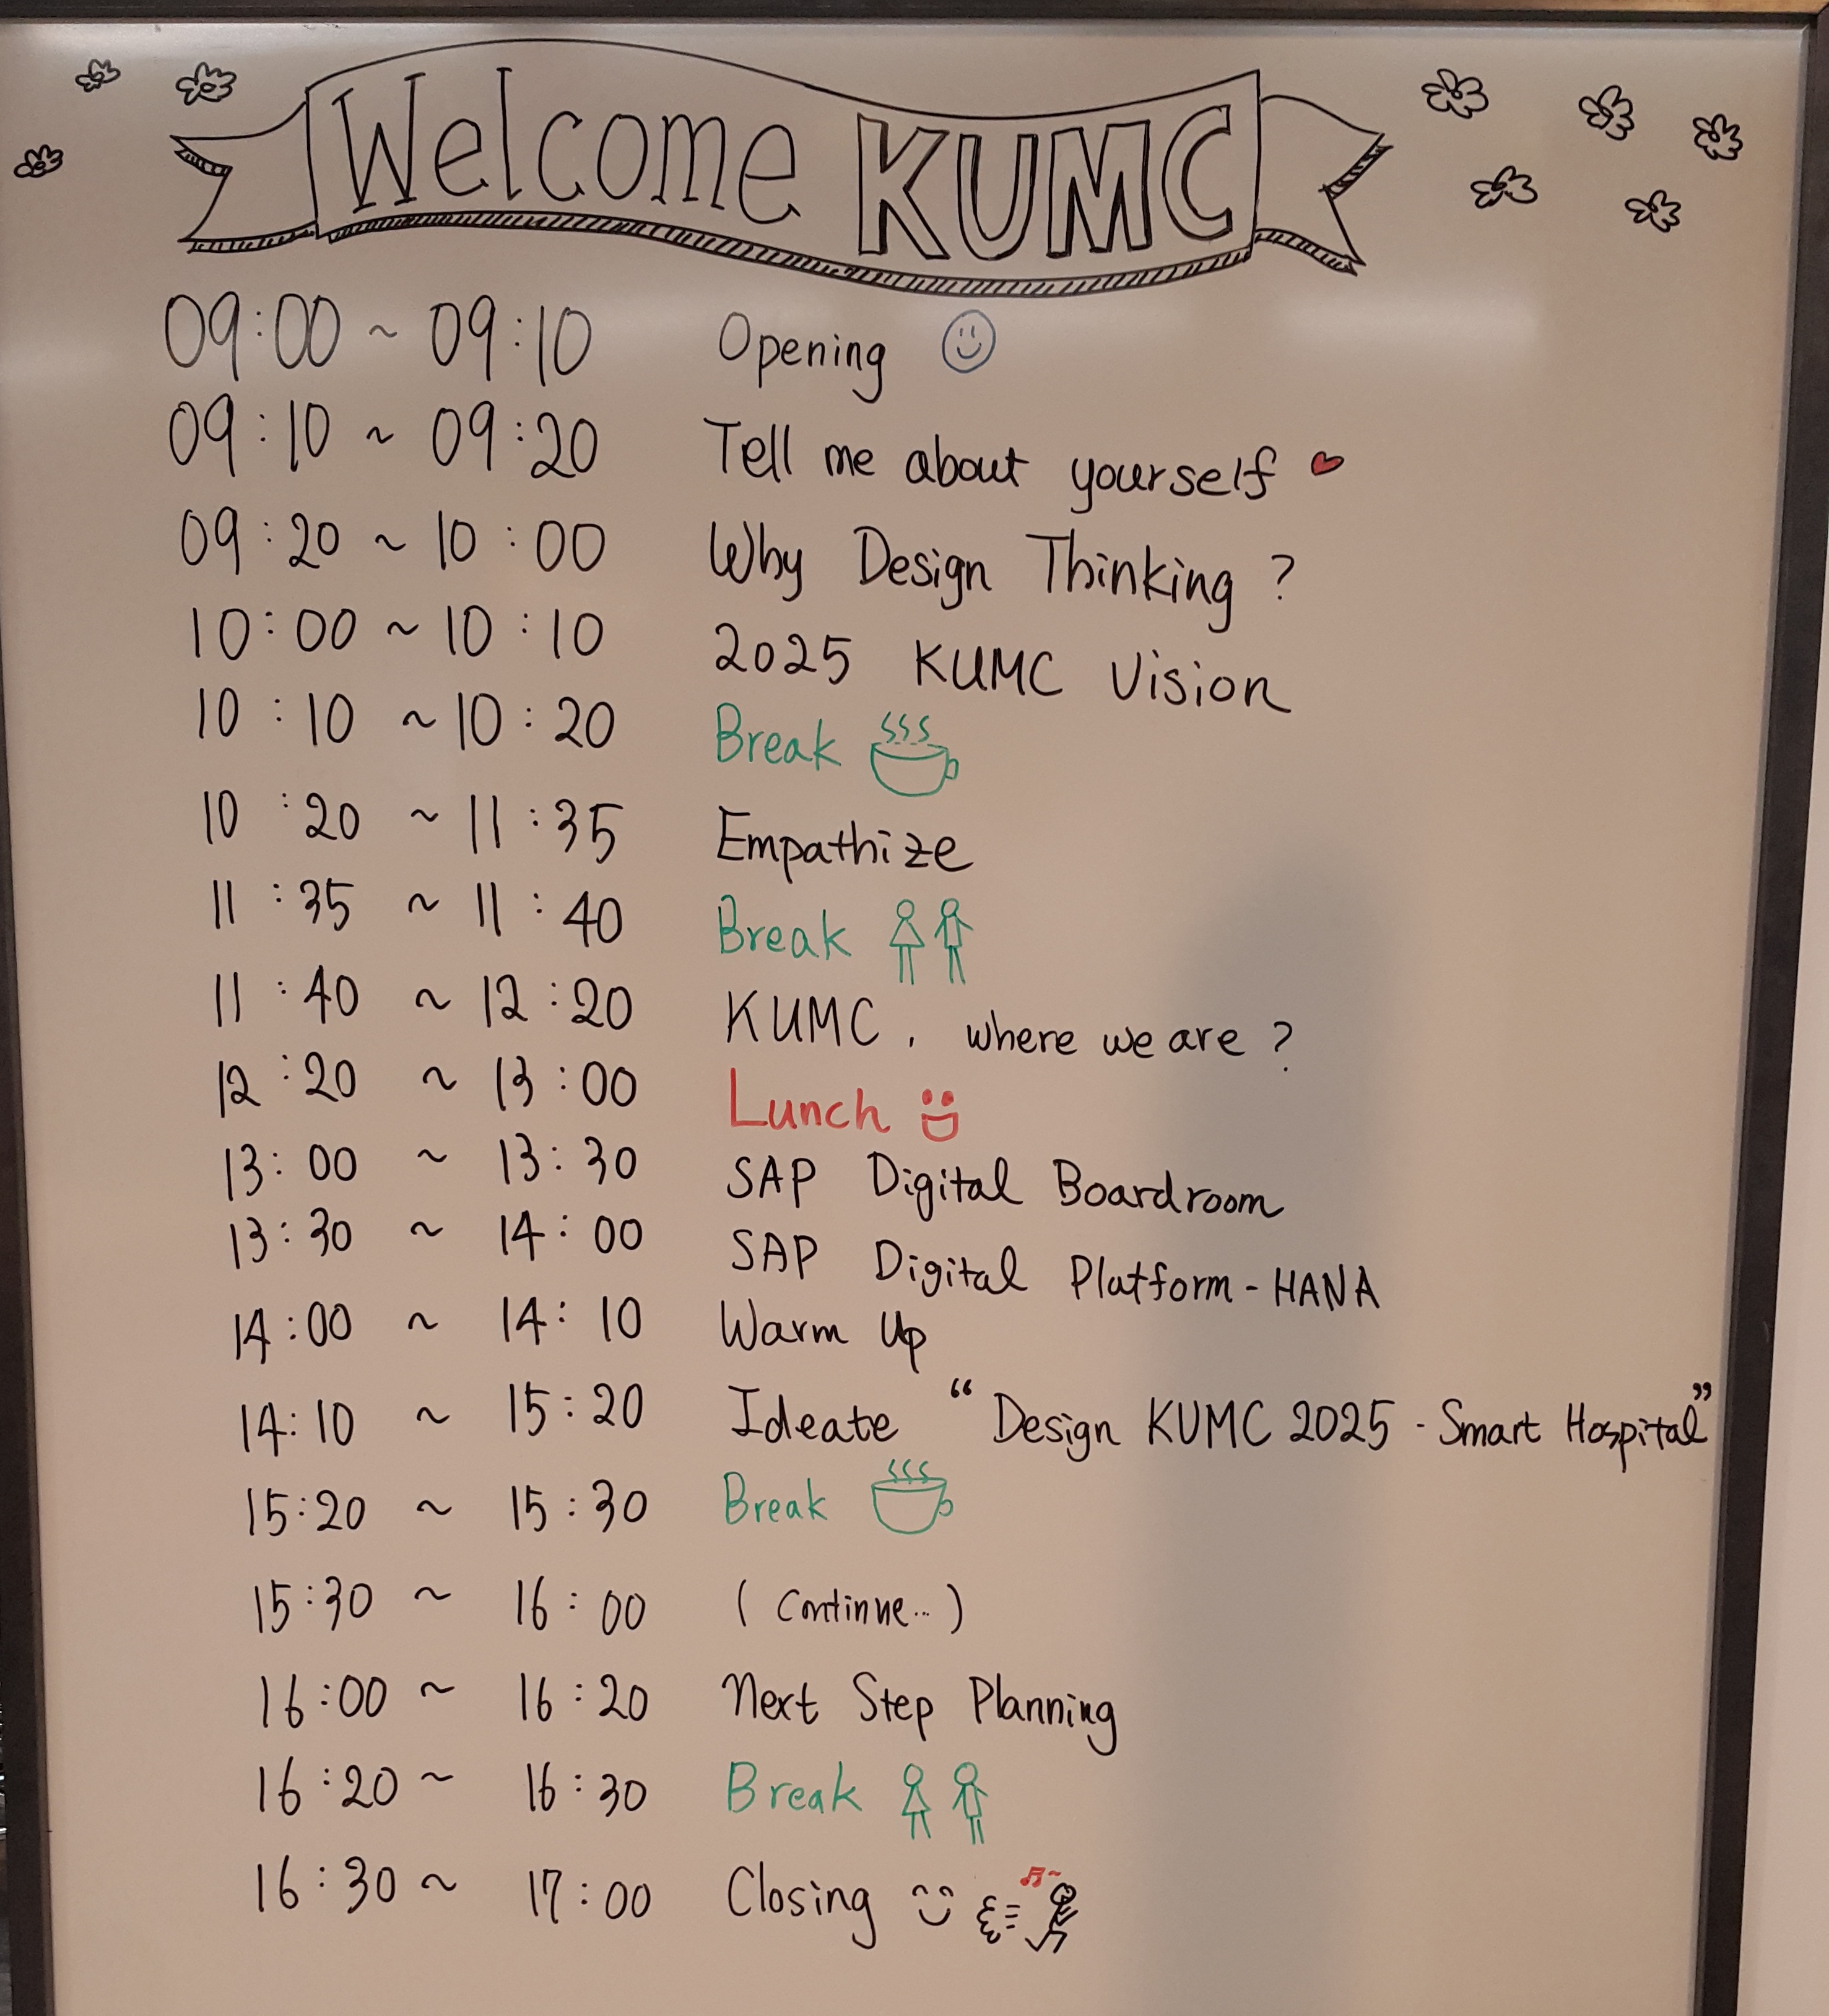 Welcome KUMC
09:00 ~ 09:10 Opening
09:10 ~ 09:20 Tell me about yourself
09:20 ~ 10:00 Why Design Thinking ?
10:00 ~ 10:10 2025 KUMC Vision
10:10 ~ 10:20 Break
10:20 ~ 11:35 Empathize
11:35 ~ 11:40 Break
11:40 ~ 12:20 KUMC, where we are ?
12:20 ~ 13:00 Lunch
13:00 ~ 13:30 SAP Digital Boardroom
13:30 ~ 14:00 SAP Digital Platform - HANA
14:00 ~ 14:10 Warm Up
14:10 ~ 15:20 Ideate “Design KUMC 2025 - Smart Hospital”
15:20 ~ 15:30 Break
15:30 ~ 16:00 (Continue...)
16:00 ~ 16:20 Next Step Planning
16:20 ~ 16:30 Break
16:30 ~ 17:00 Closing